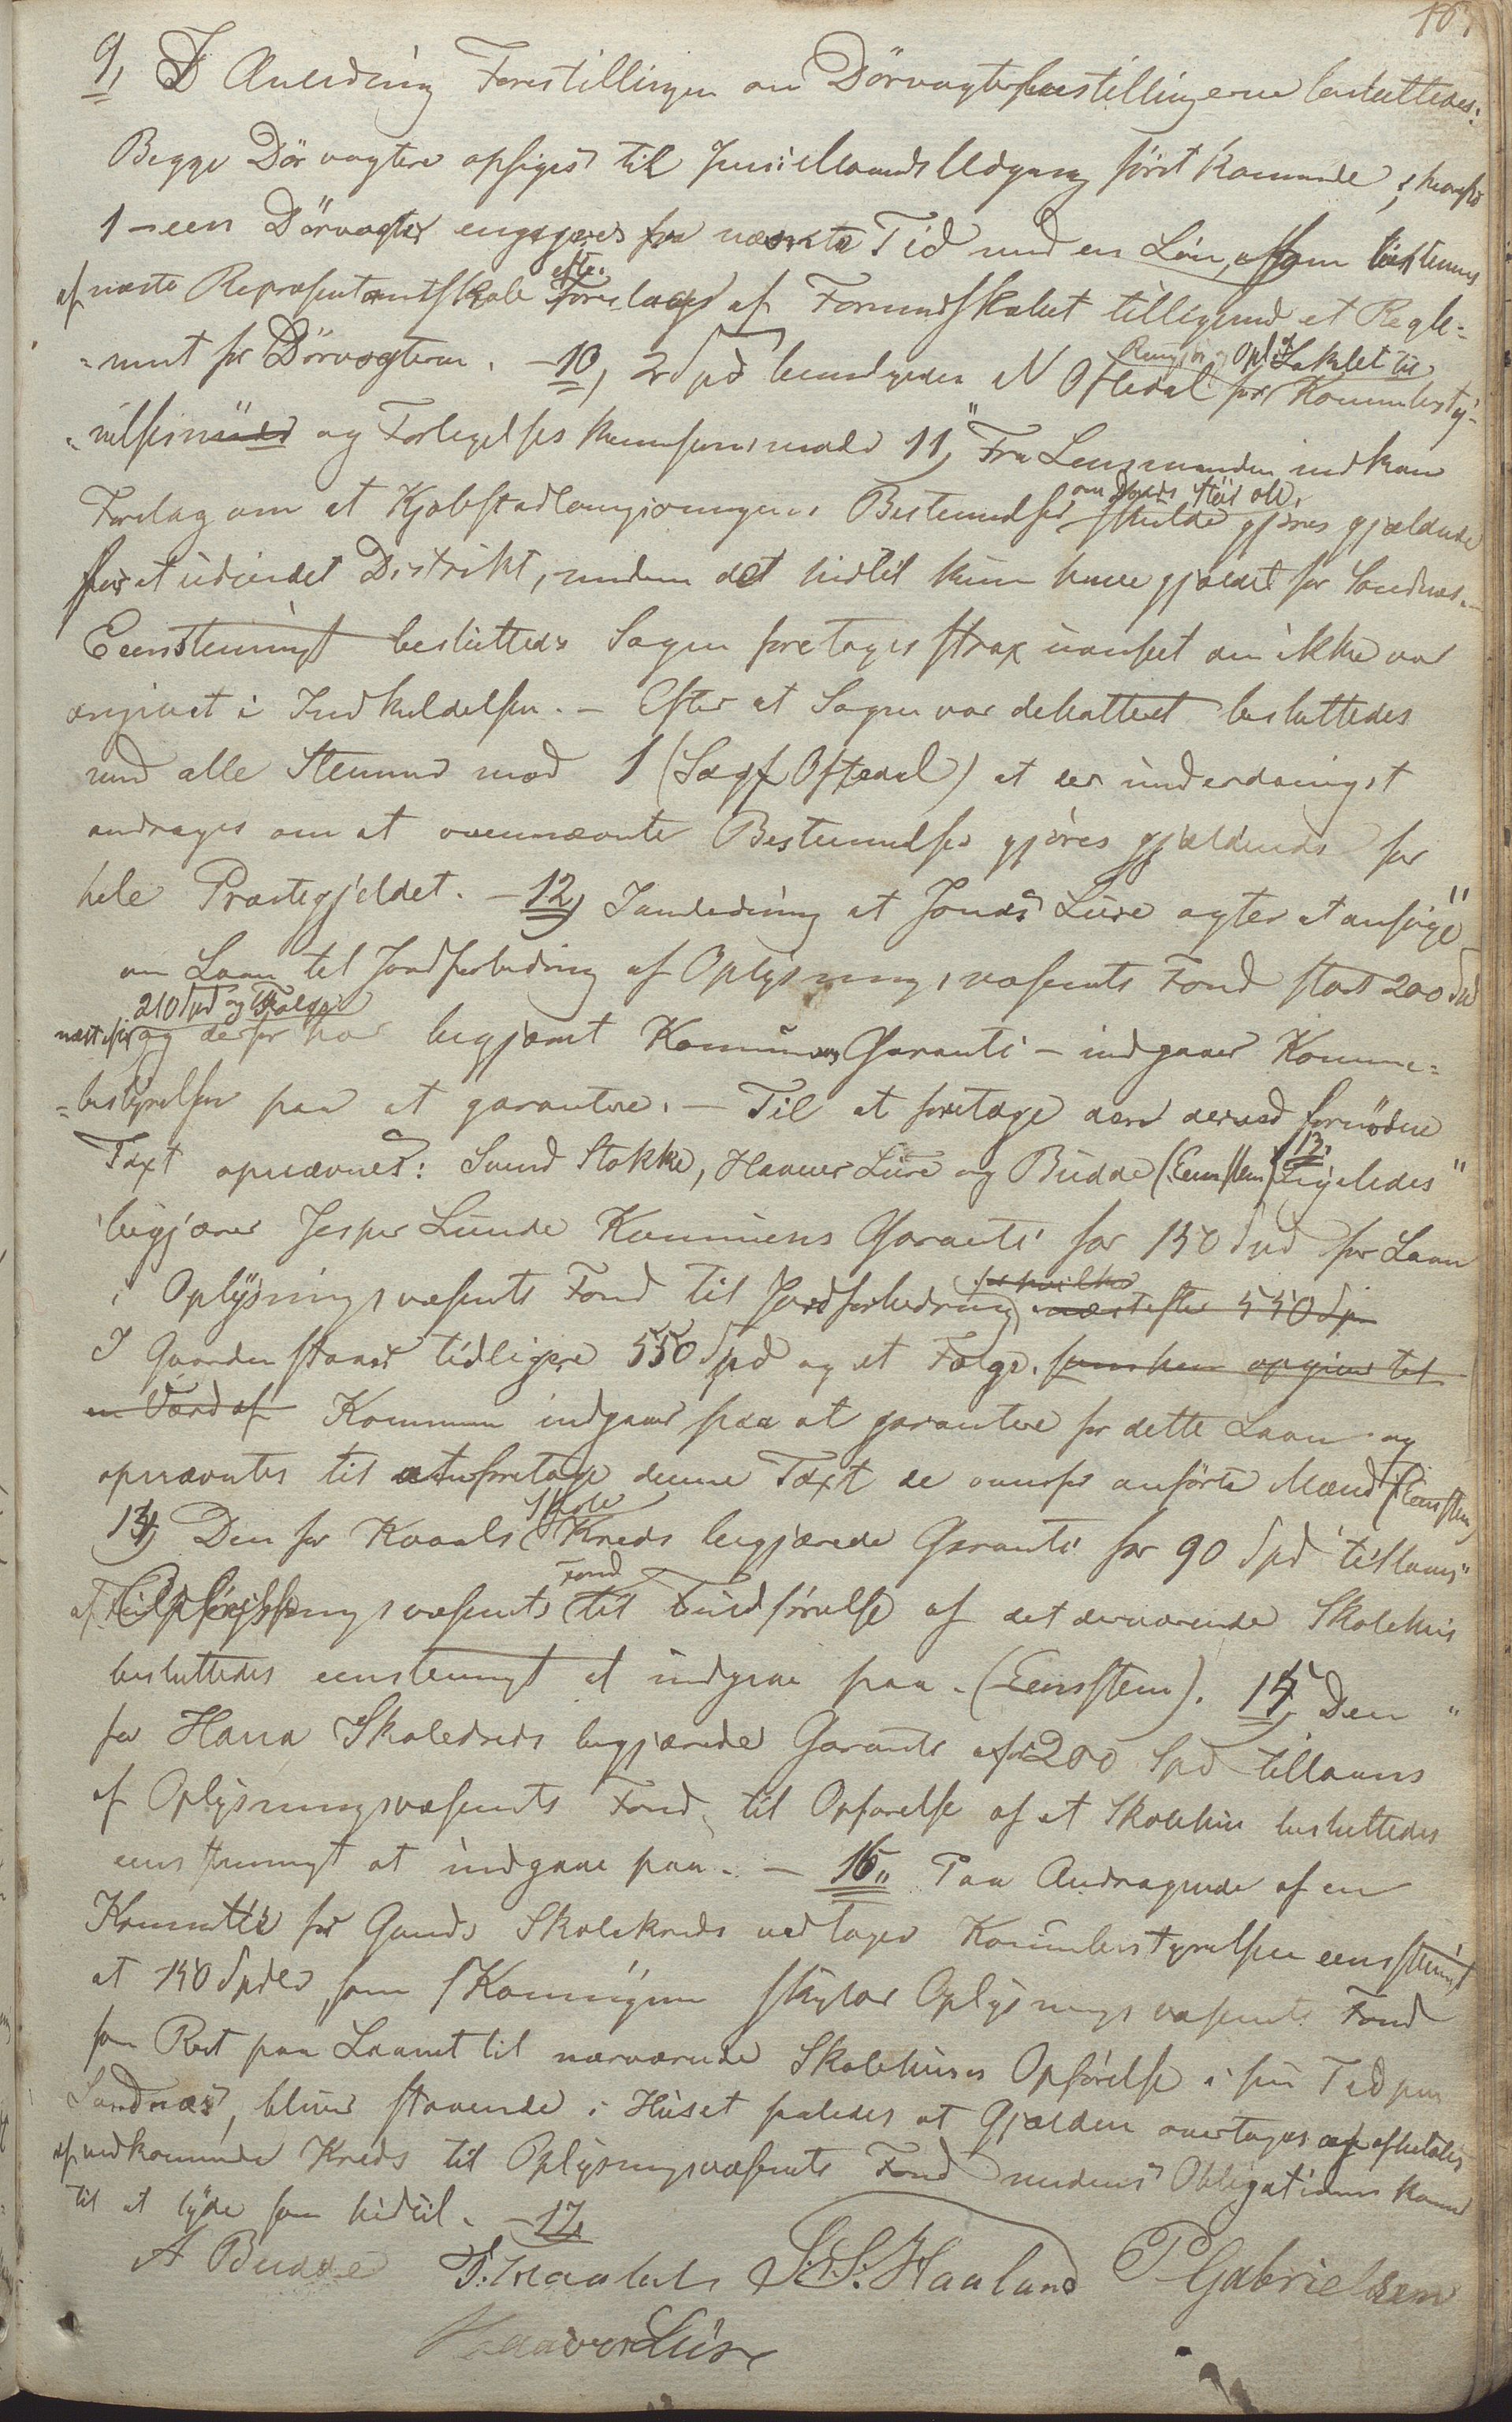 9, I Anledning Forestillingen om Dörvagterbestillingerne besluttedes:
Begge Dörvagtere opsiges til Juni Maaneds Udgang först kommende;
1 – een Dörvagter engageres fra næste Tid med en Lön, som bestemmes
af næste Repræsentantskab efter Forslag af Formandskabet tilligemed et Regle-
-ment for Dörvagteren. – 10, 2 Spd bevilgedes N Oftedal for Lokalet til Kommbesty-
-relsesmöder og Forligelseskommissionsmöde 11, Fra Lensmanden indkom
Forslag om at Kjøbstadlovgivningens Bestemmelser skulde gjöres gjældende
for et udvidet Distrikt, medens det hidtil kun have gjældt for Sandnes. –
Eenstemmigt besluttedes Sagen foretages strax uanseet den ikke var
angivet i Indkaldelsen. – Efter at Sagen var debatteret besluttedes
med alle Stemmer mod 1 (Sagf Oftedal) at der underdanigst
andrages om at ovennævnte Bestemmelser gjöres gjældende for
hele Præstegjeldet. – 12, I anledning at Jonas Lure agter at ansöge
om Laan til Jordforbedring af Oplysningsvæsenets Fond stort 200 Spd
næst efter 210 Spd og Folge og derfor har begjært Kommunens Garanti – indgaaer Komme-
-bestyrelsen paa at garantere. – Til at foretage den derved fornödne
Taxt opnævnes: Svend Stokke, Haaver Lure og Budde (Eenstem) 13, Ligeledes
begjærer Jesper Lunde Kommunens Garanti for 150 Spd for Laan
i Oplysningsvæsenets Fond til Jordforbedring for hvilke næst efter 550 Spd
I Gaarden staaer tidligere 550 Spd og et Folge. som han opgiver til
en Værd af Kommunen indgaaer paa at garantere for dette Laan og
opnævntes til at foretage denne Taxt de ovenfor anförte Mænd (Eenstem)
14, Den for Kvaals Skole Kreds begjærede Garanti for 90 Spd tillaans
af Oplysningsvæsenets Fond til Fuldförelse af det derværende Skolehus
besluttedes eenstemmigt at indgaae paa. (Eenstem). 15, Den
for Hana Skolekreds begjærede Garanti for 200 Spd tillaans
af Oplysningsvæsenets Fond til Opförelse af et Skolehus besluttedes
eenstemmigt at indgaae paa. – 16, Paa Andragende af en
Komitee for Gands Skolekreds vedtager Kommbestyrelsen eenstemmigt
at 150 Spd, som Kommunen skylder Oplysningsvæsenets Fond
som Rest paa Laanet til nærværende Skolehuses Opförelse i sin Tid paa
Sandnæs, bliver staaende i Huset saaledes at Gjælden overtages og afbetales
af vedkommende Kreds til Oplysningsvæsenets Fond medens Obligationen kommer
til at lyde som hidtil. – 17,
A Budde S. S. Haaland P Gabrielsen
Haaver Lure